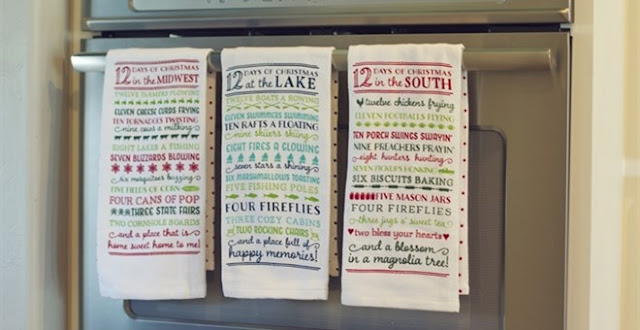 12 DAYS OF CHRISTMAS
in the MIDWEST
TWELVE FARMERS PLOWING
ELEVEN CHEESE CURDS FRYING
TEN TORNADOES TWISTING
nine cows a milking
EIGHT LAKES A FISHING
SEVEN BLIZZARDS BLOWING
six mosquitoes buzzing
FIVE FIELDS OF CORN
FOUR CANS OF POP
THREE STATE FAIRS
TWO CORNHOLE BOARDS
and a place that is
home sweet home to me!
12 DAYS OF CHRISTMAS
at the LAKE
TWELVE BOATS A ROWING
ELEVEN SWIMMERS SWIMMING
TEN RAFTS A FLOATING
nine skiers skiing
EIGHT FIRES A GLOWING
seven stars a shining
SIX MARSHMALLOWS TOASTING
FIVE FISHING POLES
FOUR FIREFLIES
THREE COZY CABINS
TWO ROCKING CHAIRS
and a place full of
happy memories!
12 DAYS OF CHRISTMAS
in the SOUTH
twelve chickens frying
ELEVEN FOOTBALLS FLYING
TEN PORCH SWINGS SWAYIN'
NINE PREACHERS PRAYIN'
eight hunters hunting
SEVEN PICKUPS HONKING
SIX BISCUITS BAKING
FIVE MASON JARS
FOUR FIREFLIES
three jugs o' sweet tea
two bless your hearts
and a blossom
in a magnolia tree!